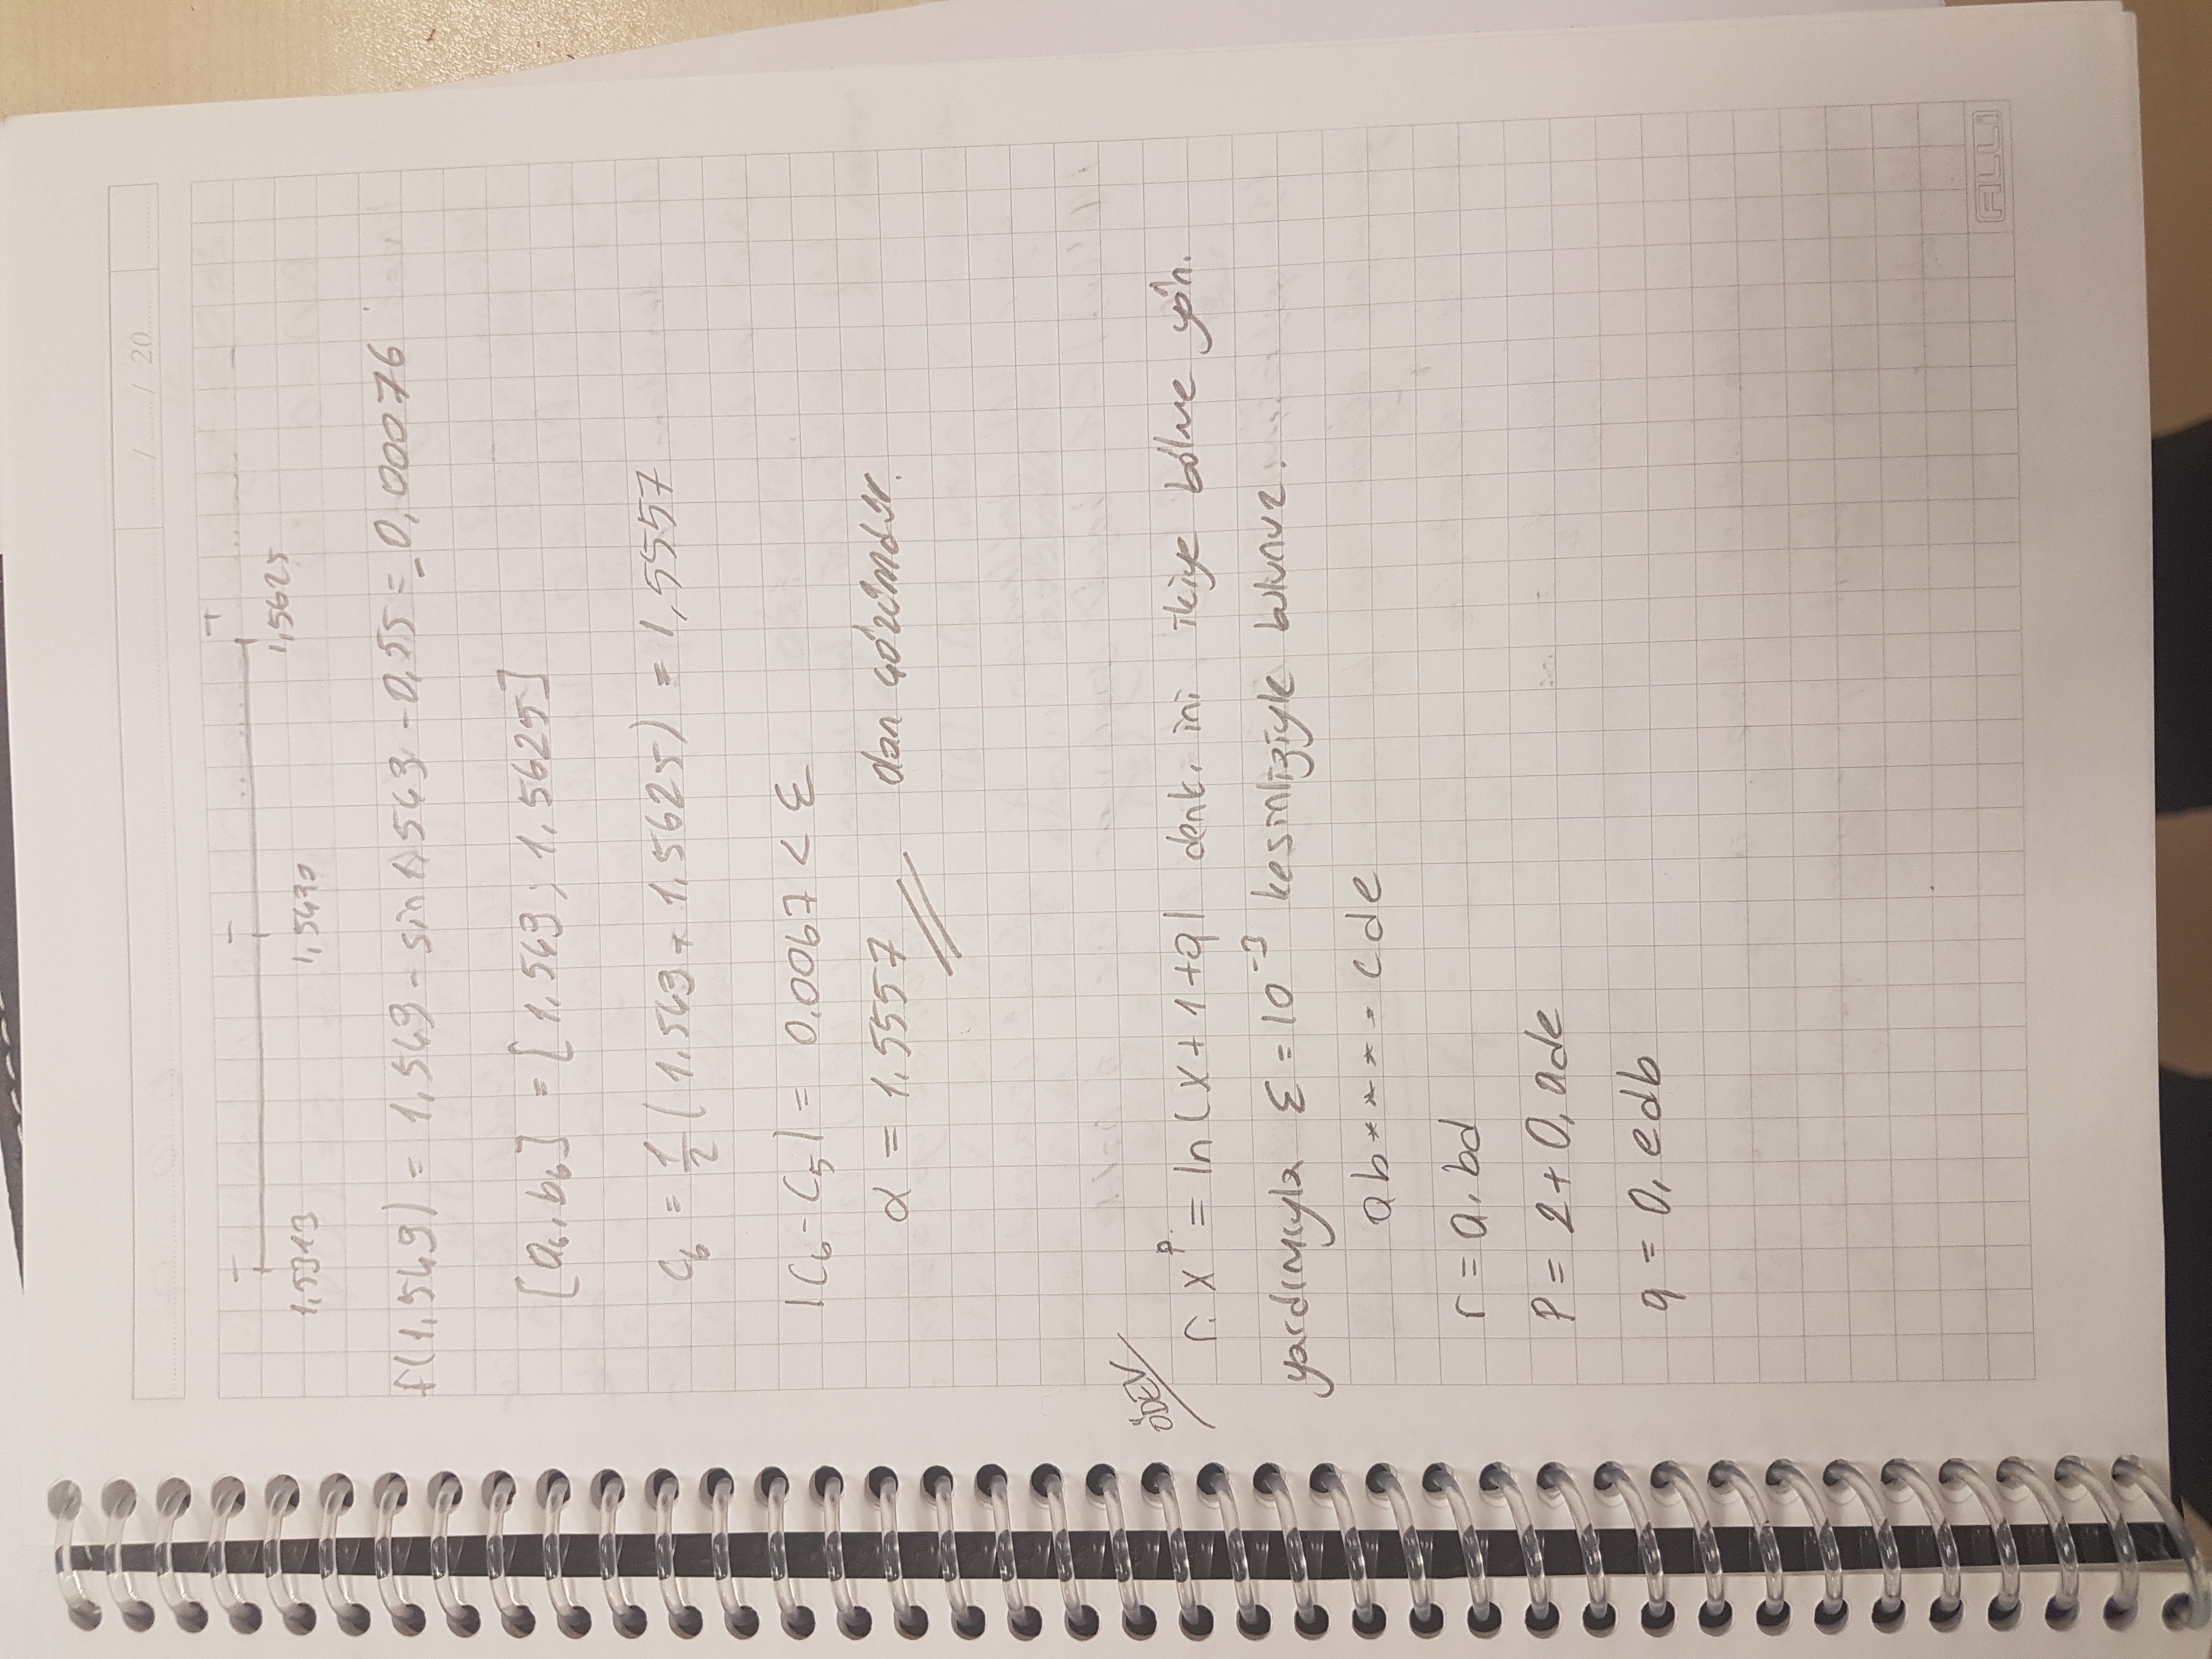 / ...... / 20
- - +
1,5313 1,5430 1,5625
f(1,549) = 1,549 - sin 1,549 - 0,55 = -0,00076
[a₆, b₆] = [1,549 ; 1,5625]
c₆ = 1/2 ( 1,549 + 1,5625) = 1,5557
|c₆ - c₅| = 0.0067 < ε
α = 1,5557 dan çözümdür.
ÖDEV
r. xᵖ = ln(x + 1 + q) denk. ini ikiye bölme yön.
yardımıyla ε = 10⁻³ kesinliğiyle bulunuz.
ab**** cde
r = a, bd
p = 2 + 0, ade
q = 0, edb
ALLi